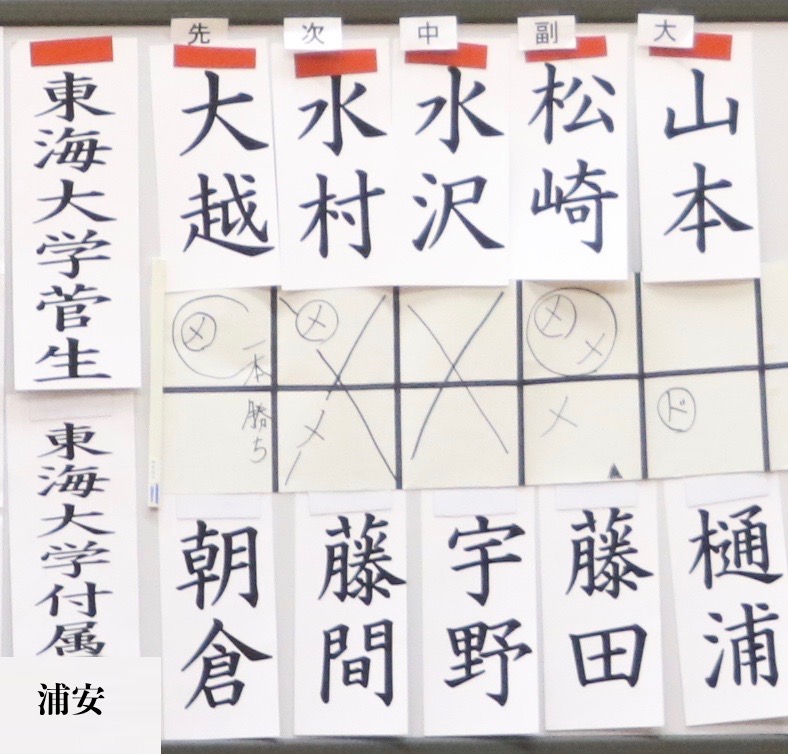 先 次 中 副 大
東海大学菅生
大越
水村
水沢
松崎
山本
メ 一本勝ち
メ
メ
メ メ
メ
ド
東海大学付属
浦安
朝倉
藤間
宇野
藤田
樋浦